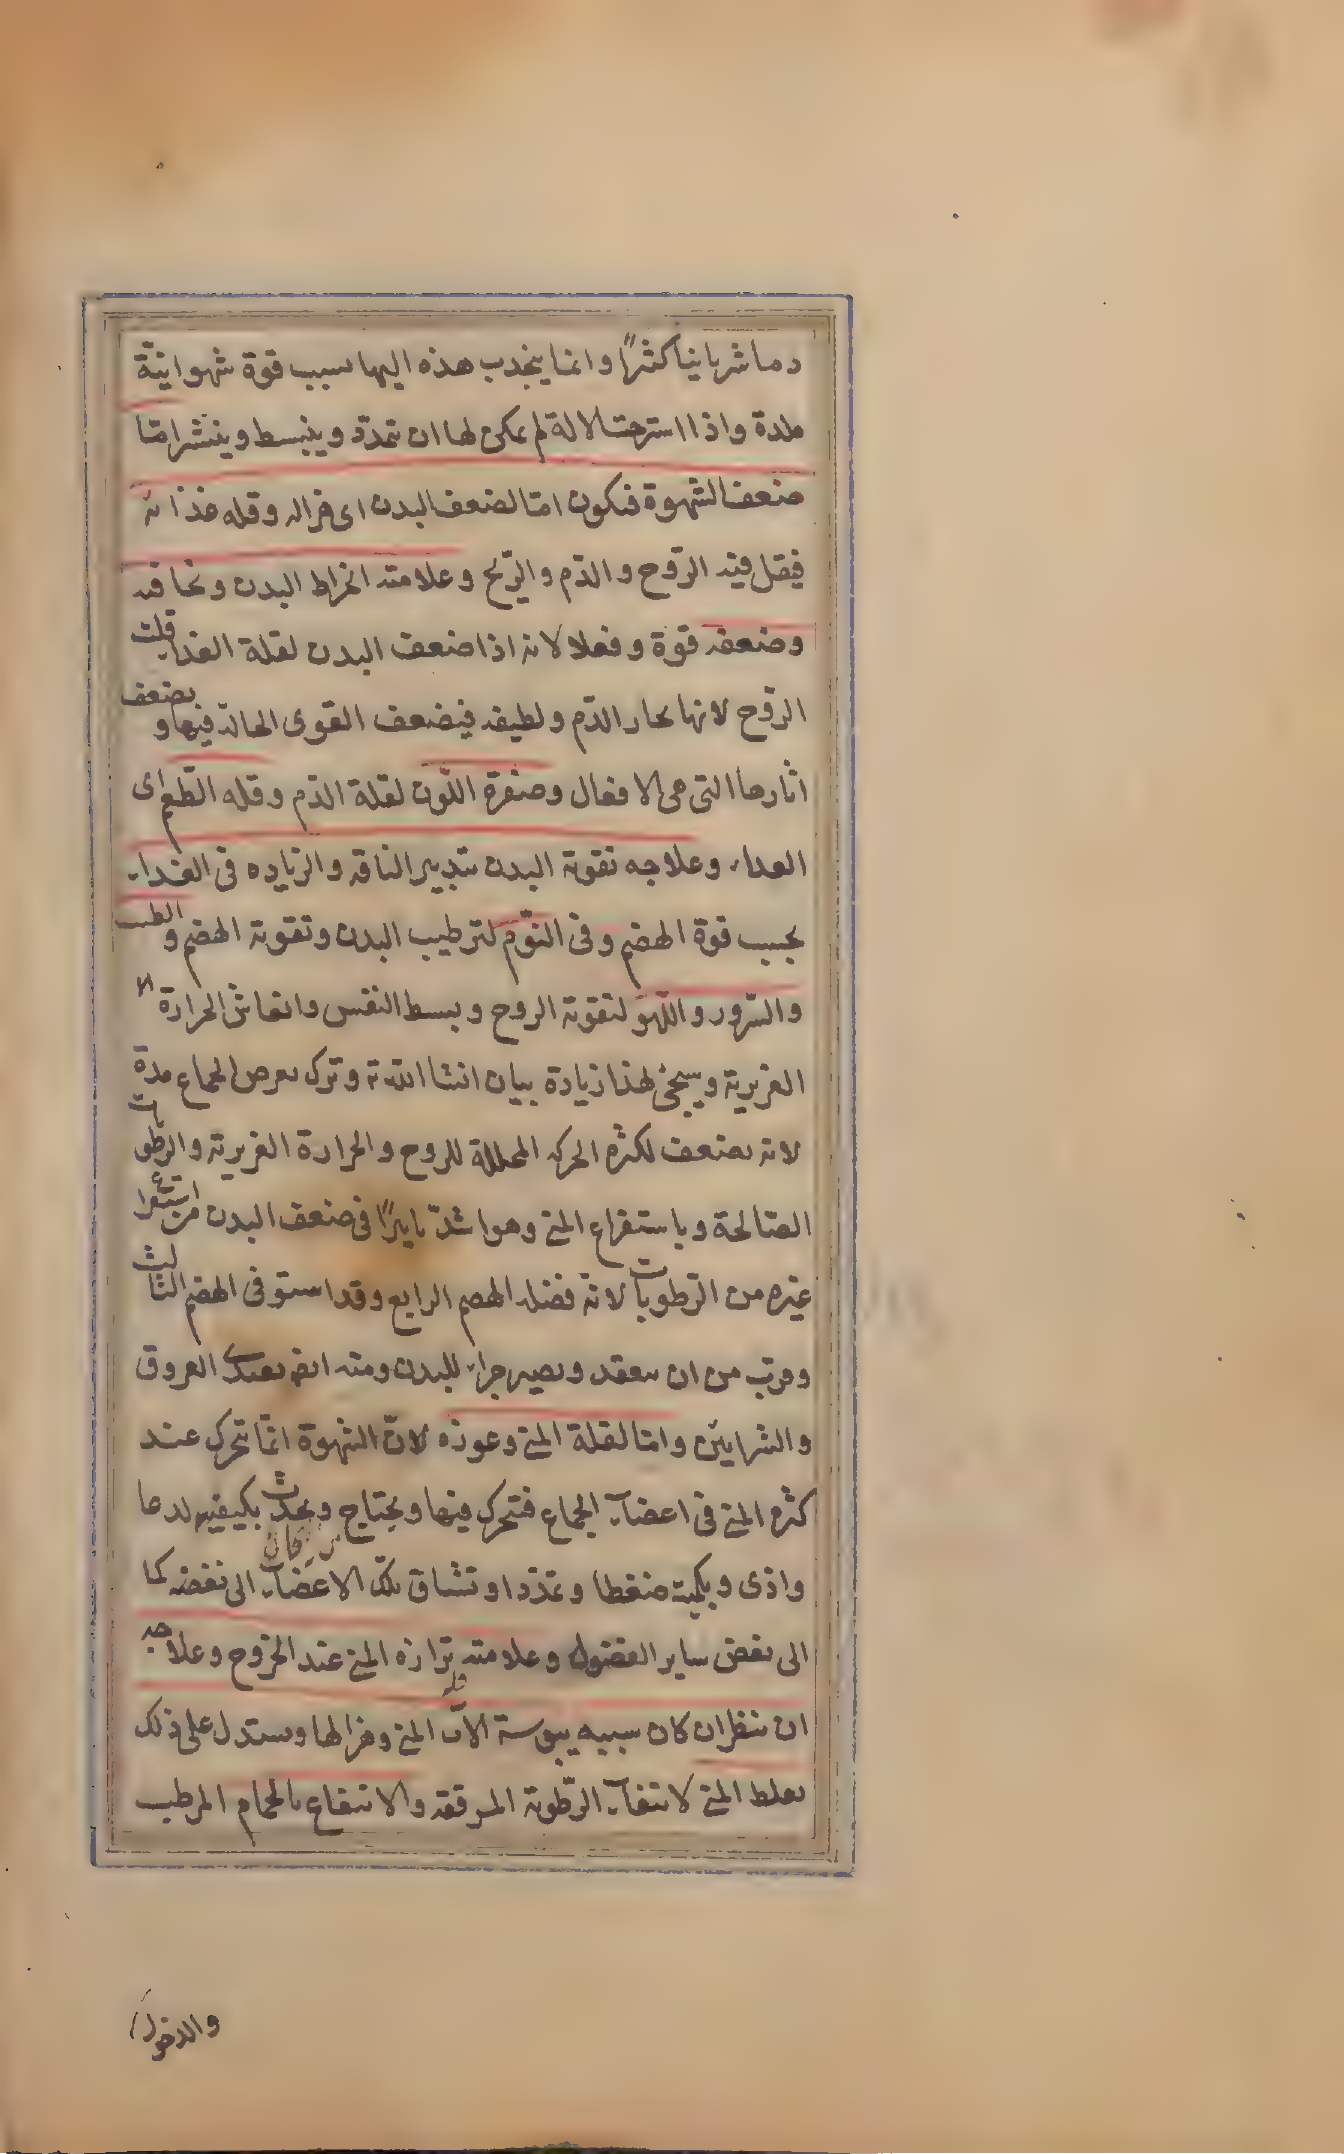 دما شريانيا كثيرًا وانما ينجذب هذه اليها بسبب قوة شهوانيّة
ملدة واذا استرخت الالة لم يمكن لها ان تمدّد وينبسط وينتشر امّا
ضعف الشهوة فيكون امّا لضعف البدن اى هزاله وقله غذائه
فيقل فيه الرّوح والدّم والرّيح وعلامته انخراط البدن ونحافته
وضعفه قوة وفعلا لانه اذا ضعف البدن لقلة الغداء قلت
الرّوح لانها بخار الدّم ولطيفه فيضعف القوى الحالّة فيها و يضعف
اثارها التى هى الافعال وصفرة اللّون لقلة الدّم وقله الطّعم اى
الغداء وعلاجه تقوية البدن بتدبير الناقه والزياده فى الغداء
بحسب قوة الهضم وفى النّوم لترطيب البدن وتقوية الهضم و الطيب
والسّرور واللّهو لتقوية الروح وبسط النفس وانعاش الحرارة الا
الغريزية وسيجئ لهذا زيادة بيان انشا اللّه ته وترك تعرض الجماع مدة
لانه يضعف لكثره الحركه المحللة للروح والحرارة الغريزية والرطوبات
الصّالحة وباستفراغ المنى وهو اشدّ تاثيرًا فى ضعف البدن من استفراغ
غيره من الرّطوبات لانّه فضله الهضم الرابع وقد استوفى الهضم الثالث
وقرب من ان ينعقد ويصير جزاء للبدن ومنه ايضا يغتدى العروق
والشرايين وامّا لقلة المنى وعوزه لانّ الشهوة انّما تتحرك عند
كثره المنى فى اعضاء الجماع فتتحرك فيها ويحتاج ويحدث بكيفيته لدعا
واذى وبكميته ضغطا وتمدّدا وتشتاق تلك الاعضاء الى نفضه كما
الى نفض ساير الفضول وعلامته نزازه المنى عند الخروج وعلاجه
ان ينظر ان كان سببه يبوسة الات المنى وهزالها ويستدل على ذلك
بغلظ المنى لانتفاء الرّطوبة المرققه والانتفاع بالحمام المرطب
والدخول